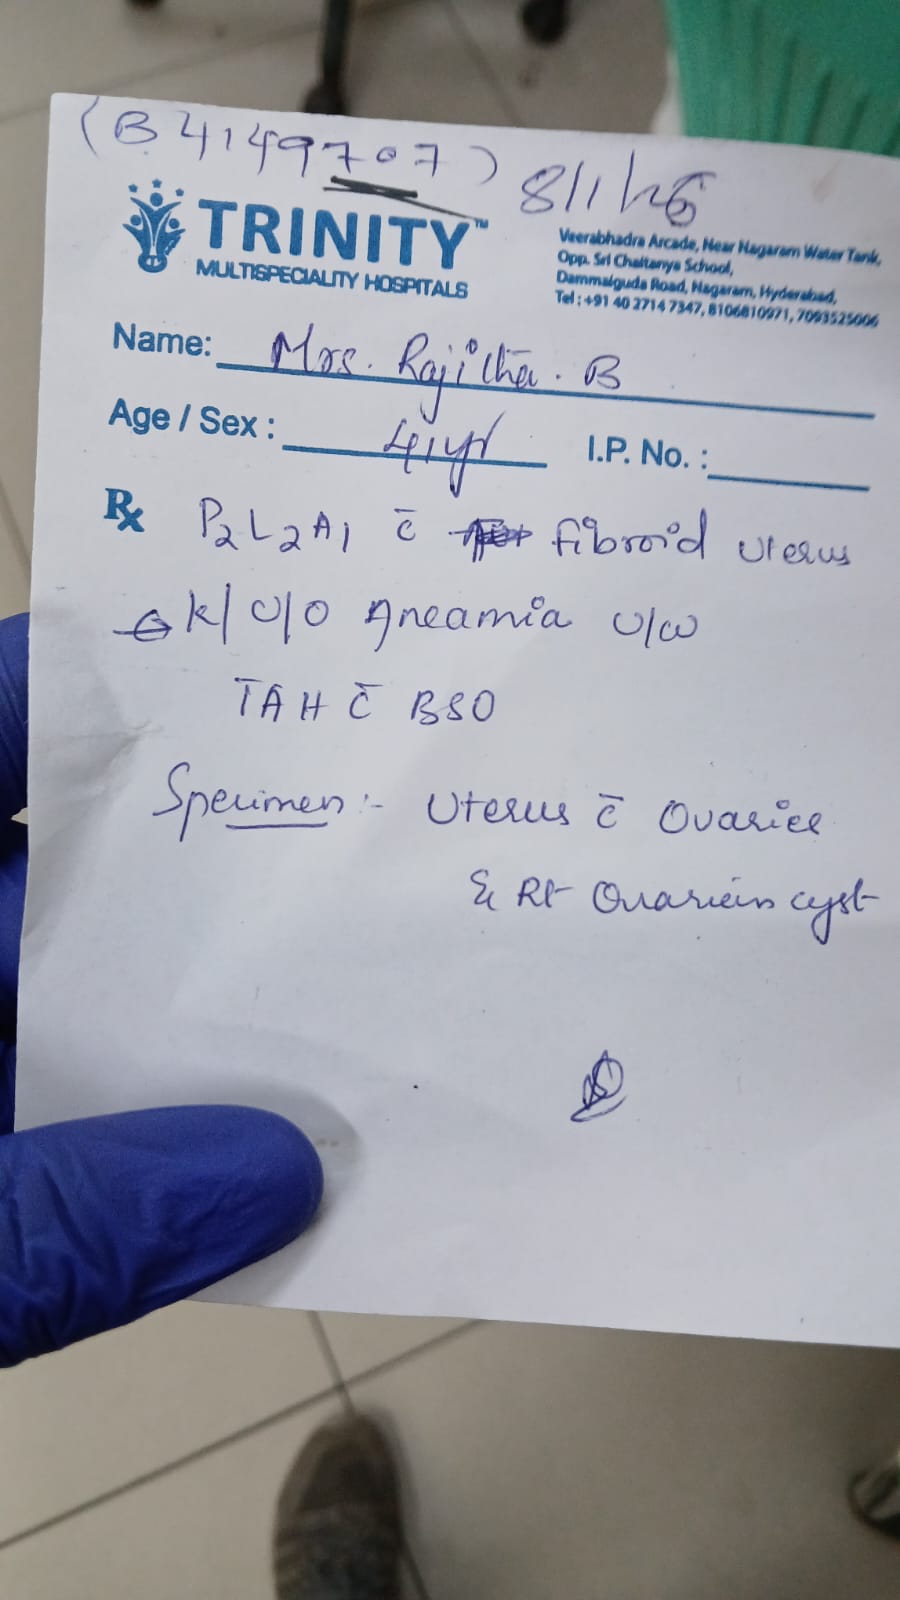 (B4149707) 8/1/26
TRINITY™
MULTISPECIALITY HOSPITALS
Veerabhadra Arcade, Near Nagaram Water Tank,
Opp. Sri Chaitanya School,
Dammaiguda Road, Nagaram, Hyderabad,
Tel : +91 40 2714 7347, 8106810971, 7093525006
Name: Mrs. Rajitha. B
Age / Sex : 41yr I.P. No. :
Rx P2L2A1 c̄ fibroid uterus
K/C/O Aneamia u/w
TAH c̄ BSO
Specimen :- Uterus c̄ Ovaries
& Rt Ovarian cyst